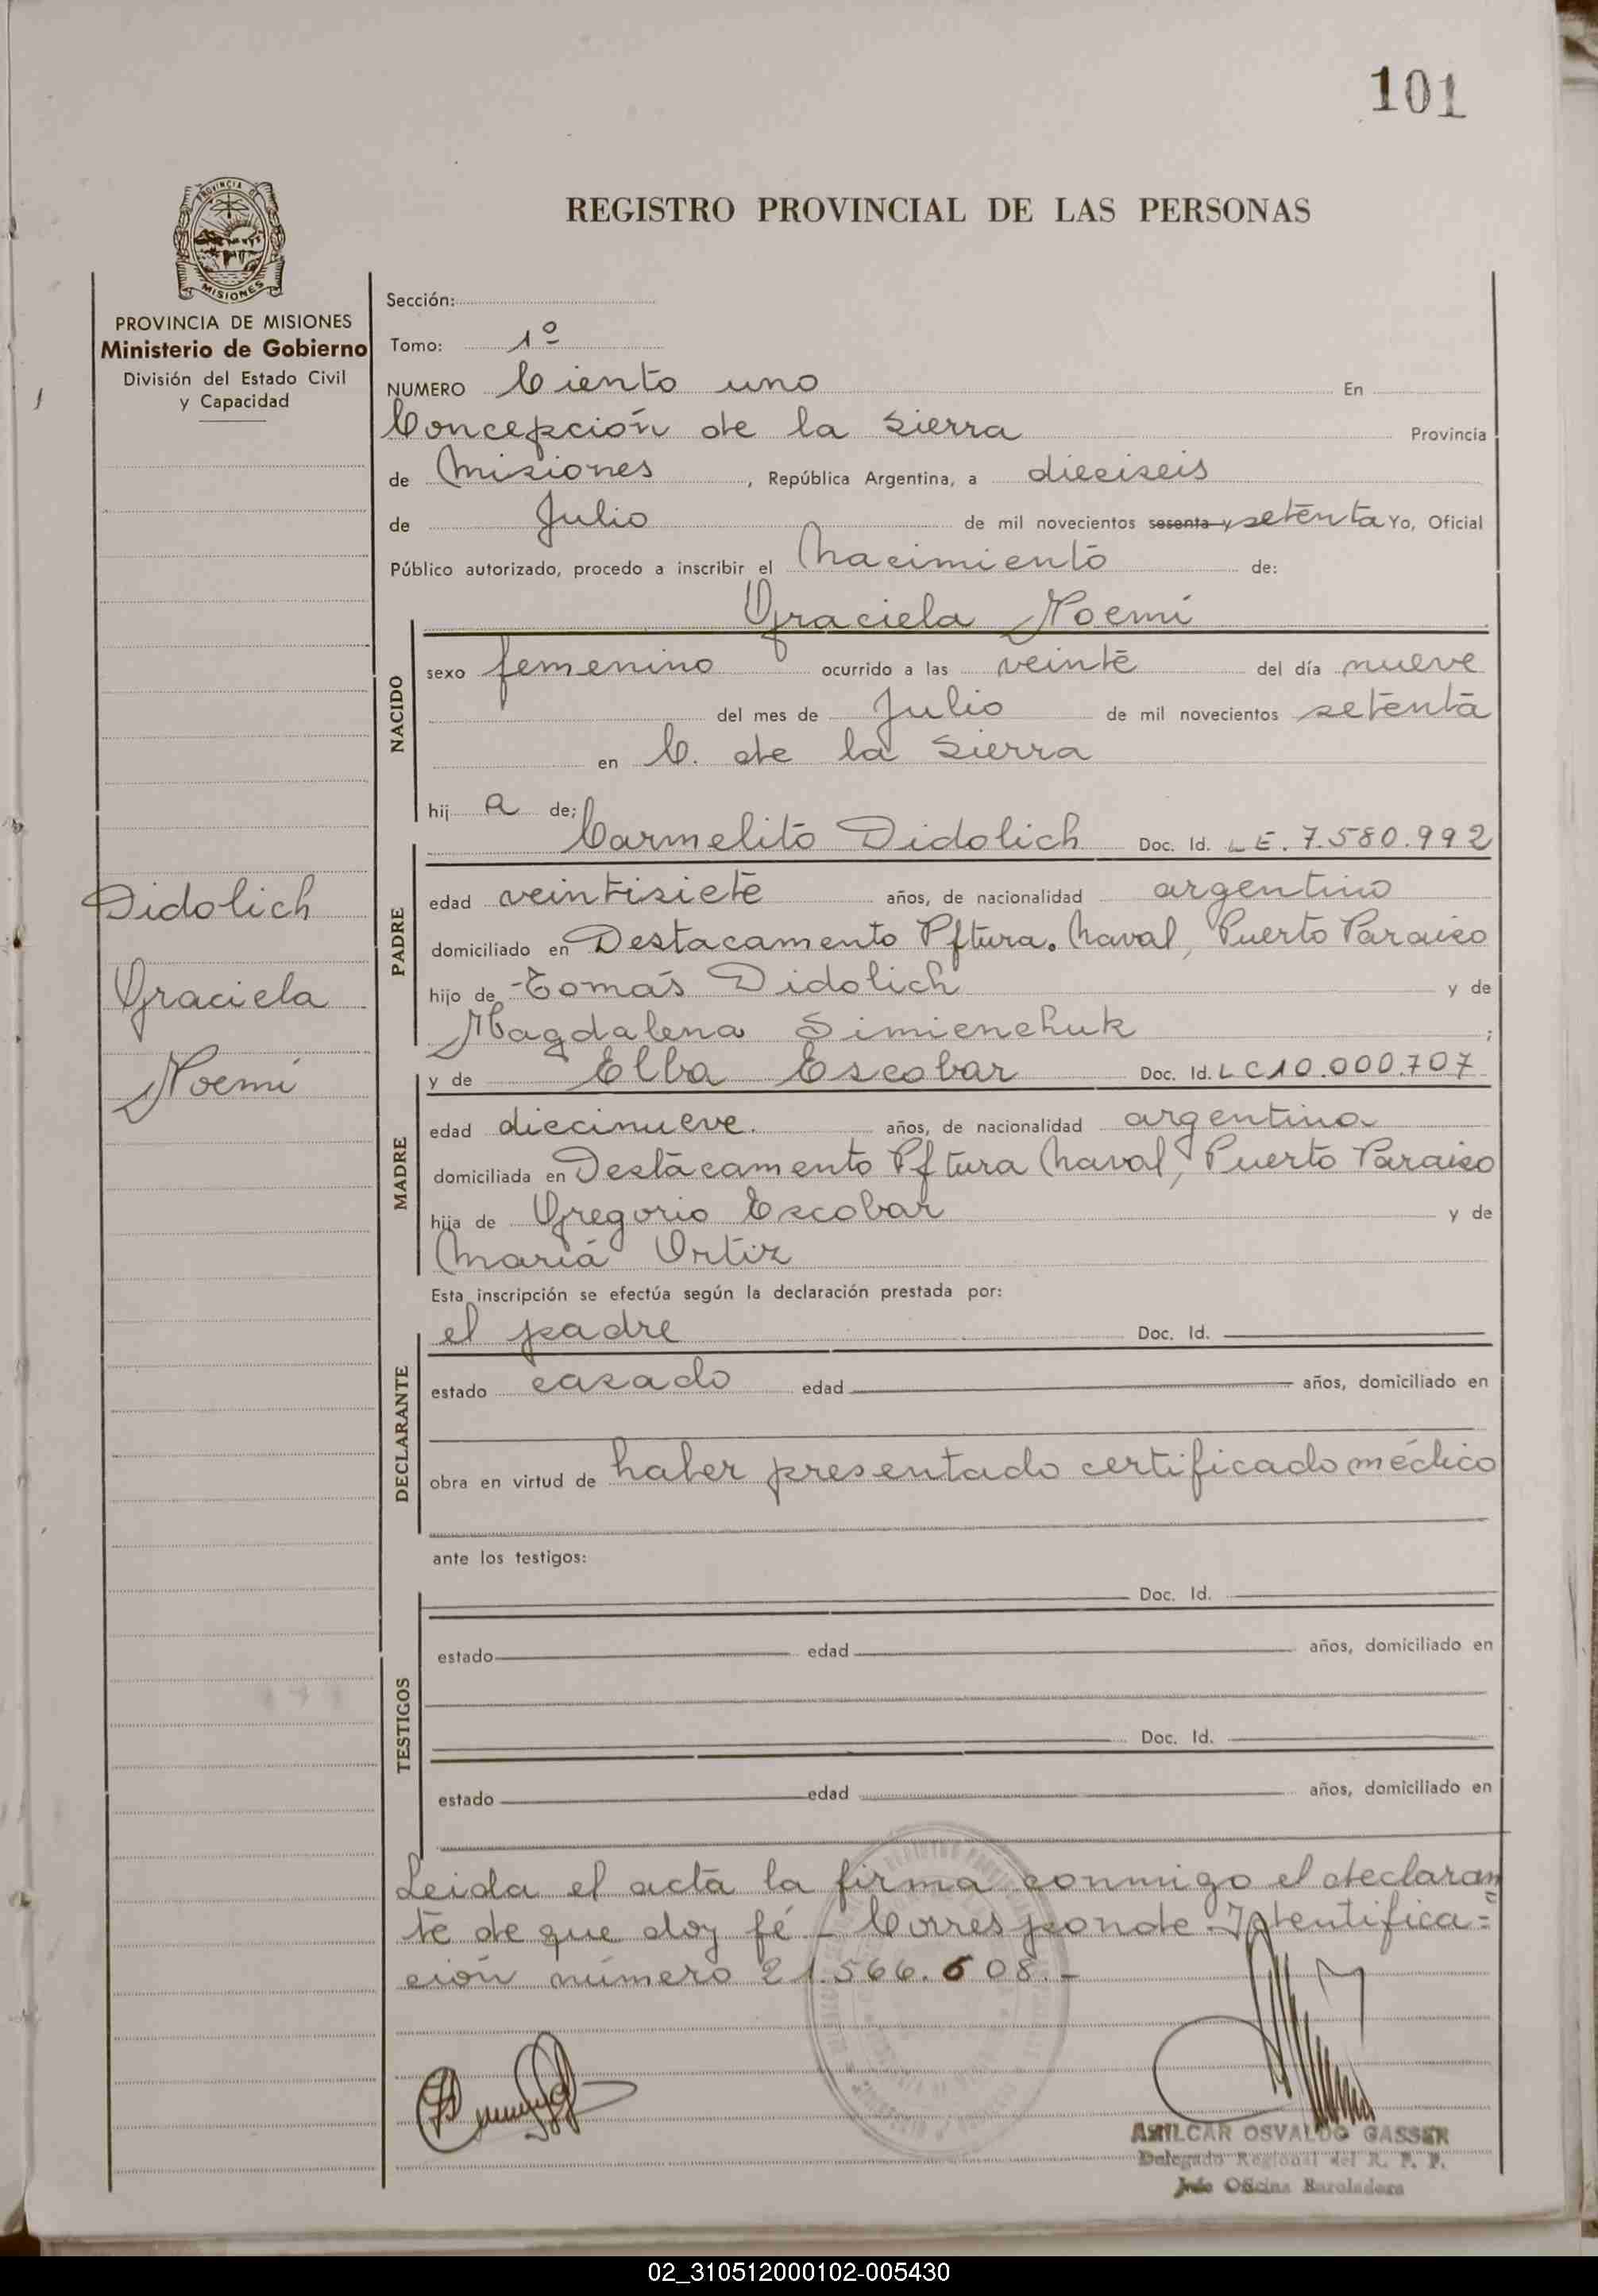 101
REGISTRO PROVINCIAL DE LAS PERSONAS
PROVINCIA DE MISIONES
Ministerio de Gobierno
División del Estado Civil
y Capacidad
Didolich
Graciela
Noemi
Sección:
Tomo: 1º
NUMERO Ciento uno En
Concepción de la Sierra Provincia
de Misiones, República Argentina, a dieciseis
de Julio de mil novecientos sesenta y setenta Yo, Oficial
Público autorizado, procedo a inscribir el Nacimiento de:
Graciela Noemi
NACIDO
sexo femenino ocurrido a las veinte del día nueve
del mes de Julio de mil novecientos setenta
en C. de la Sierra
hij a de;
PADRE
Carmelito Didolich Doc. Id. L E. 7.580.992
edad veintisiete años, de nacionalidad argentino
domiciliado en Destacamento Pftura. Naval, Puerto Paraiso
hijo de Tomás Didolich y de
Magdalena Simienchuk ;
MADRE
y de Elba Escobar Doc. Id. L C 10.000.707
edad diecinueve. años, de nacionalidad argentina
domiciliada en Destacamento Pftura Naval, Puerto Paraiso
hija de Gregorio Escobar y de
María Ortiz
Esta inscripción se efectúa según la declaración prestada por:
DECLARANTE
el padre Doc. Id.
estado casado edad años, domiciliado en
obra en virtud de haber presentado certificado médico
ante los testigos:
TESTIGOS
Doc. Id.
estado edad años, domiciliado en
Doc. Id.
estado edad años, domiciliado en
Leida el acta la firma conmigo el declaran
te de que doy fé - Corresponde Identifica=
ción número 21.566.608.-
AMILCAR OSVALDO GASSER
Delegado Regional del R. P. P.
Jefe Oficina
02_310512000102-005430